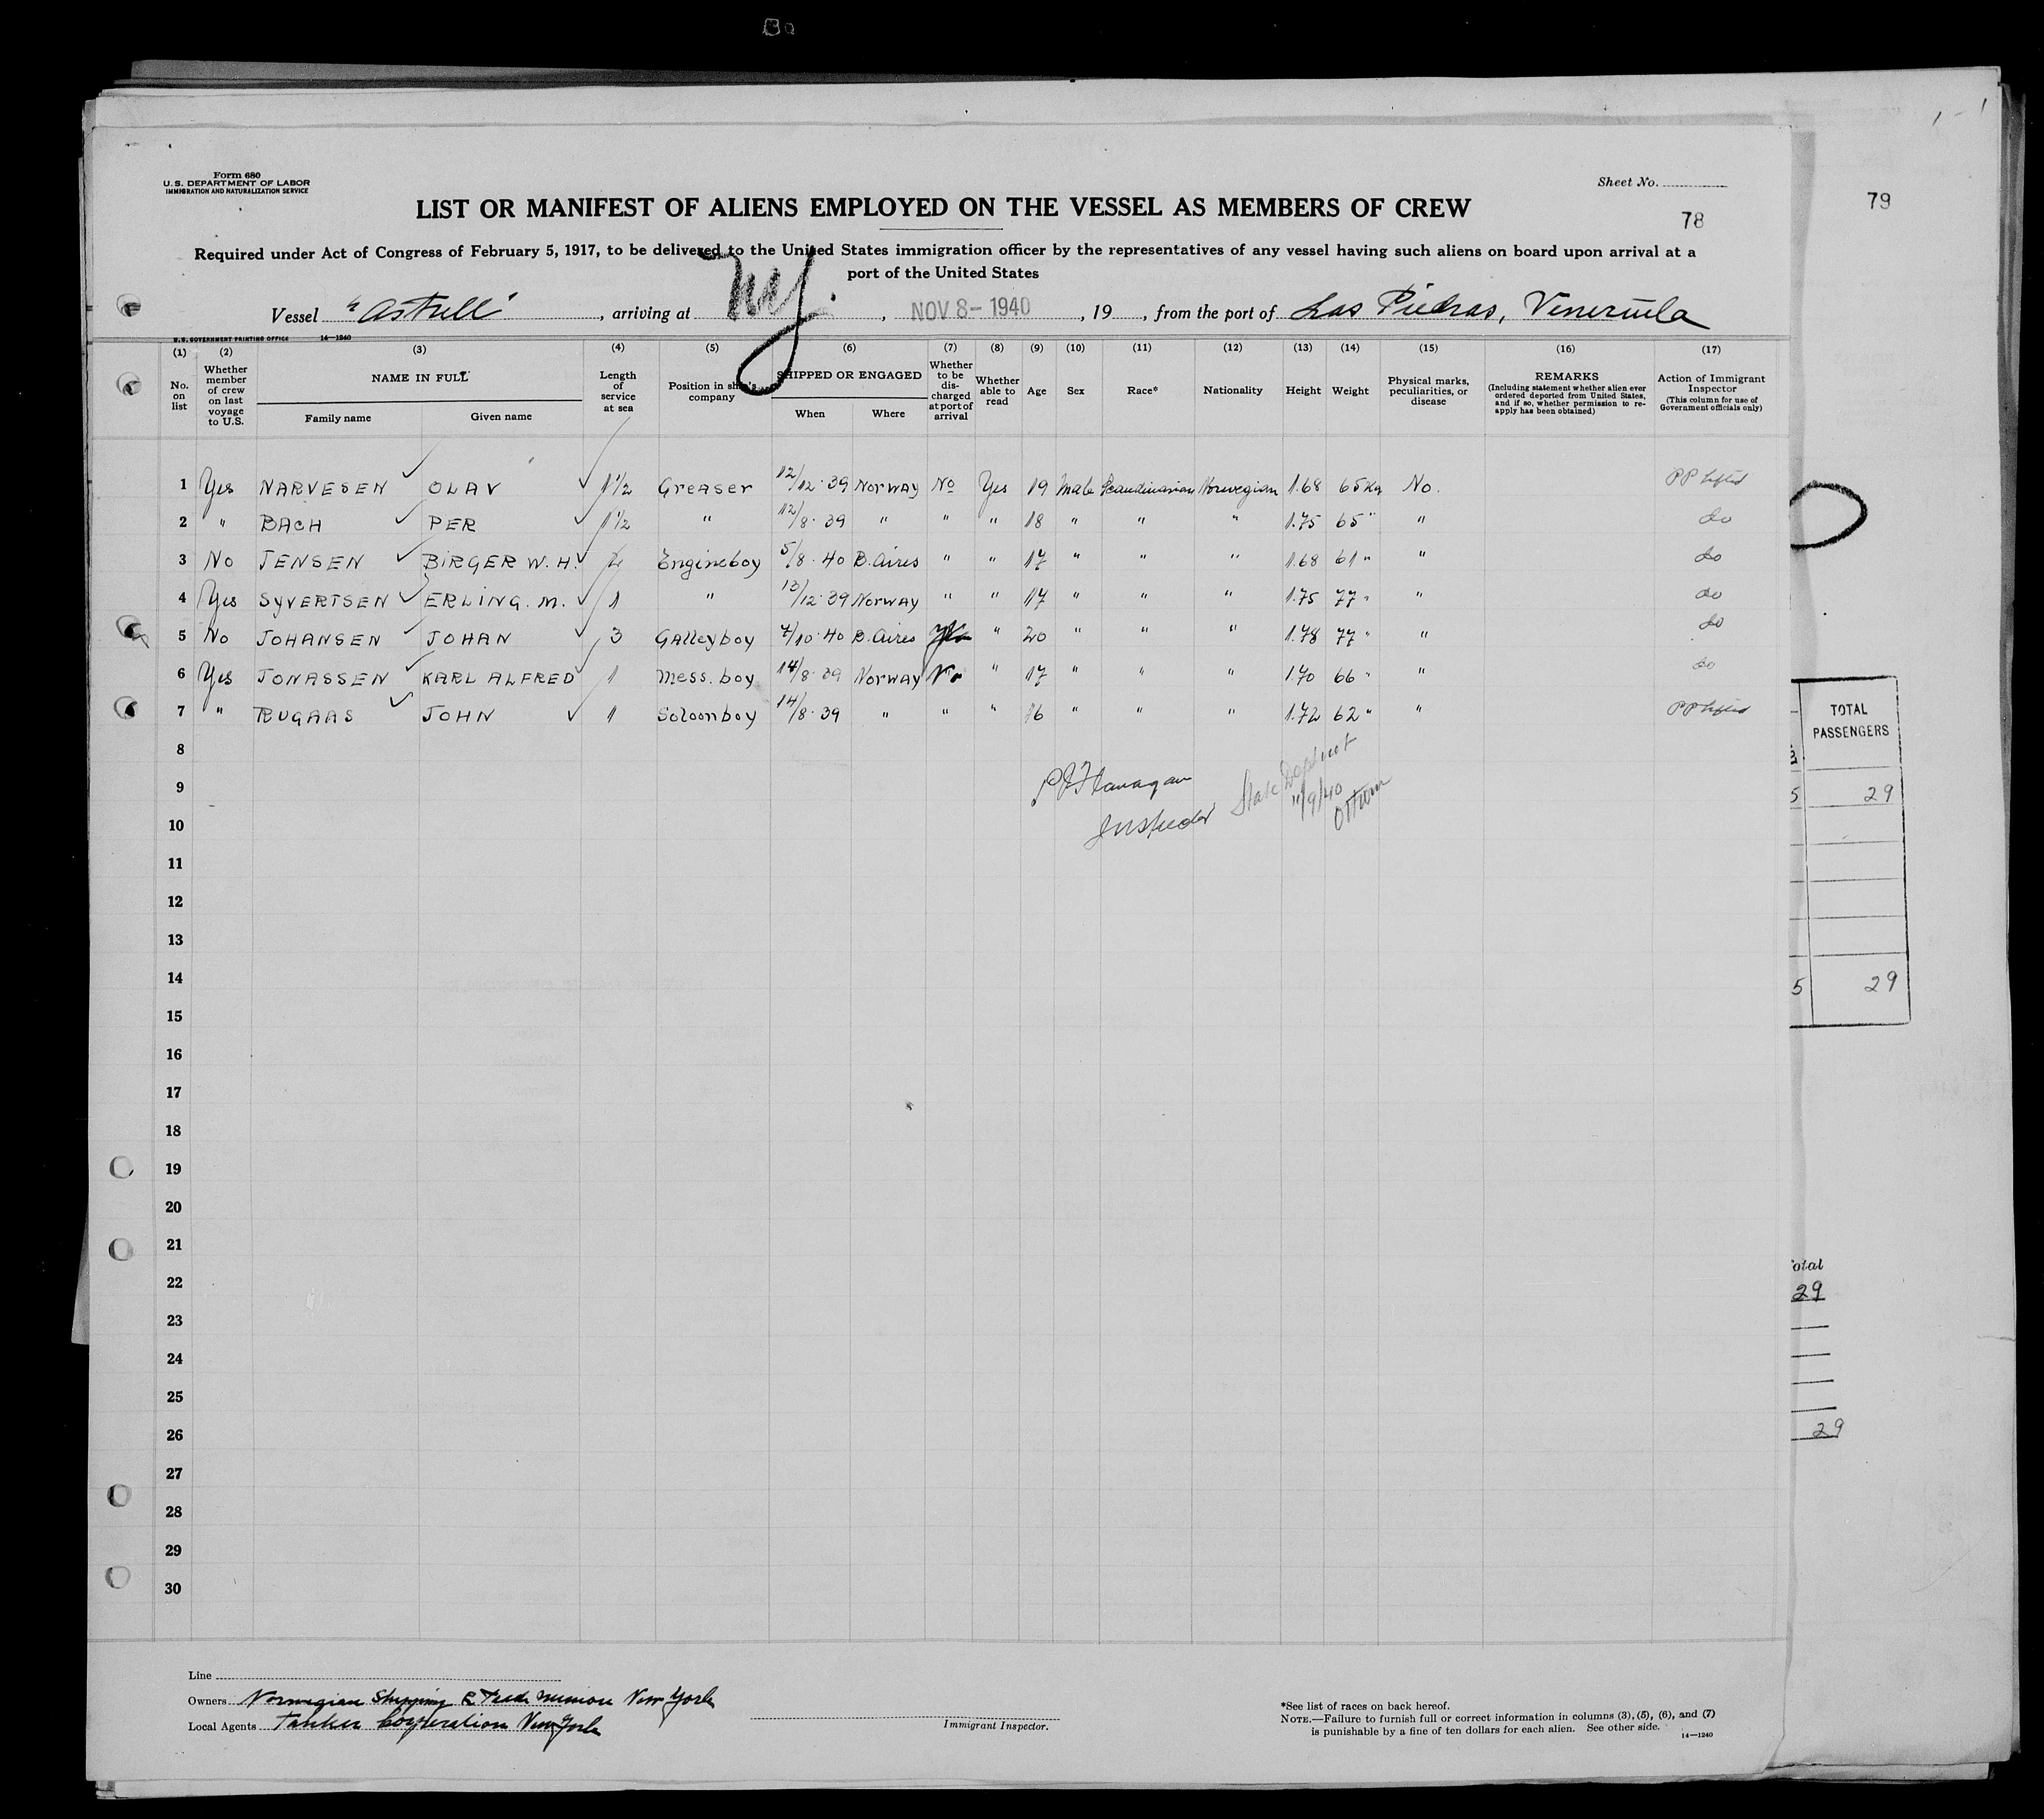 79
Form 680
U.S. DEPARTMENT OF LABOR
IMMIGRATION AND NATURALIZATION SERVICE
Sheet No.
LIST OR MANIFEST OF ALIENS EMPLOYED ON THE VESSEL AS MEMBERS OF CREW
78
Required under Act of Congress of February 5, 1917, to be delivered to the United States immigration officer by the representatives of any vessel having such aliens on board upon arrival at a
port of the United States
Vessel "Astrell" , arriving at NY. , NOV 8 - 1940 , 19 , from the port of Las Piedras, Venezuela
U.S. GOVERNMENT PRINTING OFFICE 14—1240
(1) (2) (3) (4) (5) (6) (7) (8) (9) (10) (11) (12) (13) (14) (15) (16) (17)
No. on list
Whether member of crew on last voyage to U.S.
NAME IN FULL
Family name
Given name
Length of service at sea
Position in ship's company
SHIPPED OR ENGAGED
When
Where
Whether to be discharged at port of arrival
Whether able to read
Age
Sex
Race*
Nationality
Height
Weight
Physical marks, peculiarities, or disease
REMARKS
(Including statement whether alien ever ordered deported from United States, and if so, whether permission to reapply has been obtained)
Action of Immigrant Inspector
(This column for use of Government officials only)
1 Yes NARVESEN OLAV 1 1/2 Greaser 12/12-39 Norway No Yes 19 Male Scandinavian Norwegian 1.68 65 Kg No. PP lifted
2 " BACH PER 1 1/2 " 12/8-39 " " " 18 " " " 1.75 65 " " do
3 No JENSEN BIRGER W. H. 5/8-40 B. Aires " " 17 " " " 1.68 61 " " do
Engineboy
4 Yes SYVERTSEN ERLING. M. 1 " 13/12-39 Norway " " 17 " " " 1.75 77 " " do
5 No JOHANSEN JOHAN 3 Galleyboy 7/10-40 B. Aires Yes " 20 " " " 1.78 77 " " do
6 Yes JONASSEN KARL ALFRED 1 Mess. boy 14/8-39 Norway No " 17 " " " 1.70 66 " " do
7 " RUGAAS JOHN 1 Soloonboy 14/8-39 " " " 16 " " " 1.72 62 " " PP lifted
8
9
10
11
12
13
14
15
16
17
18
19
20
21
22
23
24
25
26
27
28
29
30
P J Flanagan
Inspector
State Dept
11/9/40
TOTAL
PASSENGERS
5 29
5 29
otal
29
29
Line
Owners Norwegian Shipping & Trade Mission New York
Local Agents Tanker Corporation New York
Immigrant Inspector.
*See list of races on back hereof.
NOTE.—Failure to furnish full or correct information in columns (3), (5), (6), and (7)
is punishable by a fine of ten dollars for each alien. See other side.
14—1240